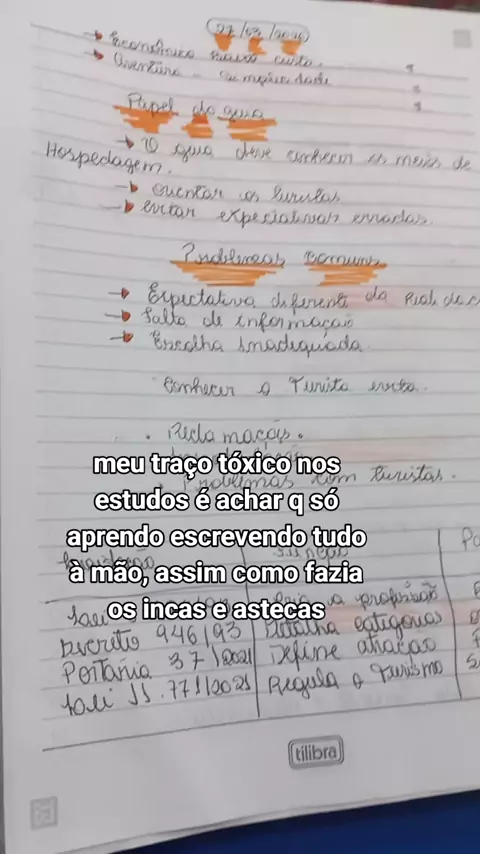 27/03/2026
→ Econômico
→ Aventura -
Papel do guia
→ O guia deve conhecer os meios de
Hospedagem.
→ orientar os turistas
→ evitar expectativas erradas.
Problemas Comuns
→ Expectativa diferente da
→ Falta de informação
→ Escolha inadequada
Conhecer o Turista evita.
• Reclamações.
Problemas com turistas.
meu traço tóxico nos
estudos é achar q só
aprendo escrevendo tudo
à mão, assim como fazia
os incas e astecas
a profissão
Decreto 946/93 Detalha categorias
Portaria 37/2021 Define atuação
11.771/2021 Regula o Turismo
tilibra